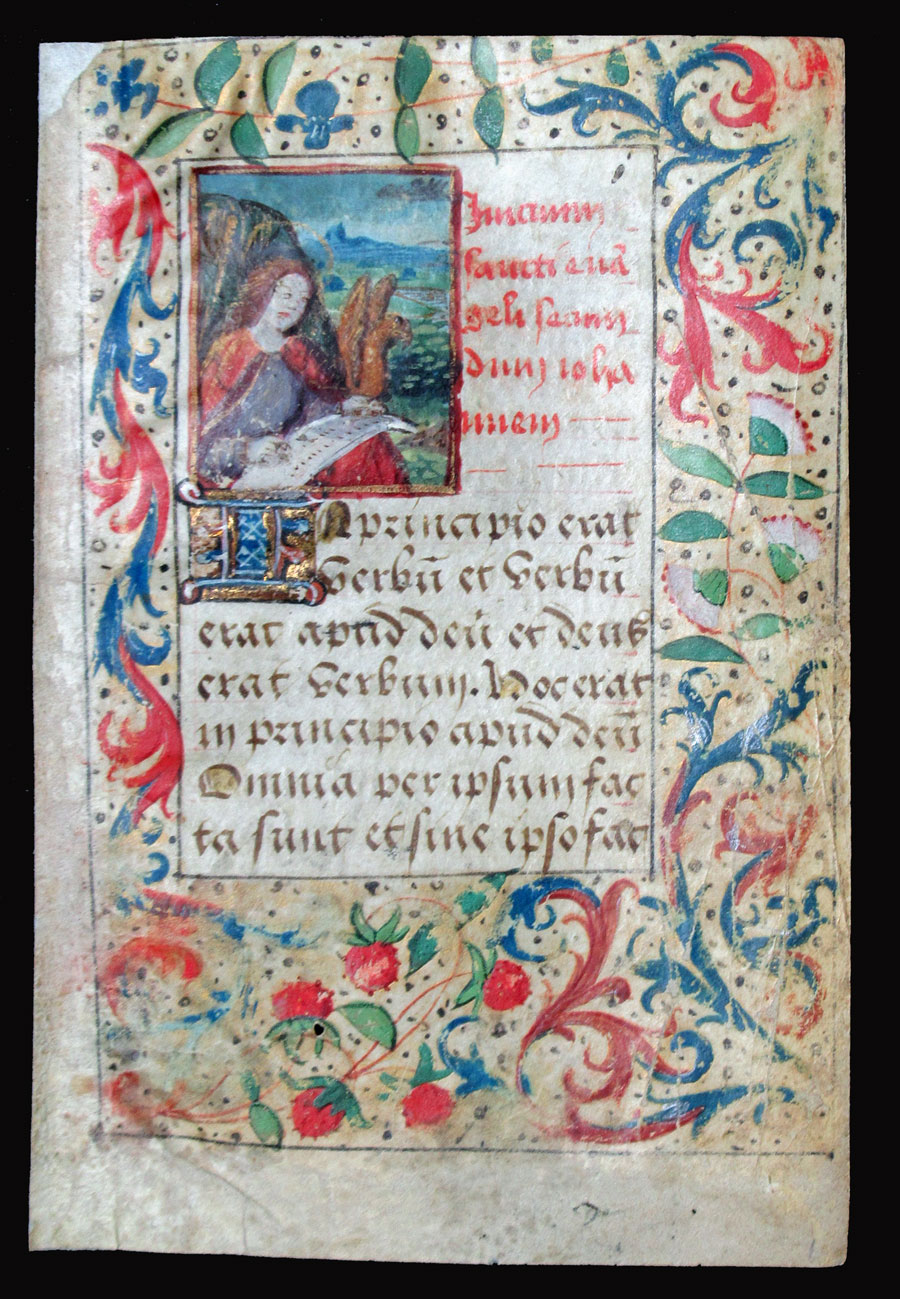 Inicium
sancti euā
geli secun
dum ioha
nnem
IN principio erat
verbū et verbū
erat apud deū et deus
erat verbum. Hoc erat
in principio apud deū
Omnia per ipsum fac
ta sunt et sine ipso fac